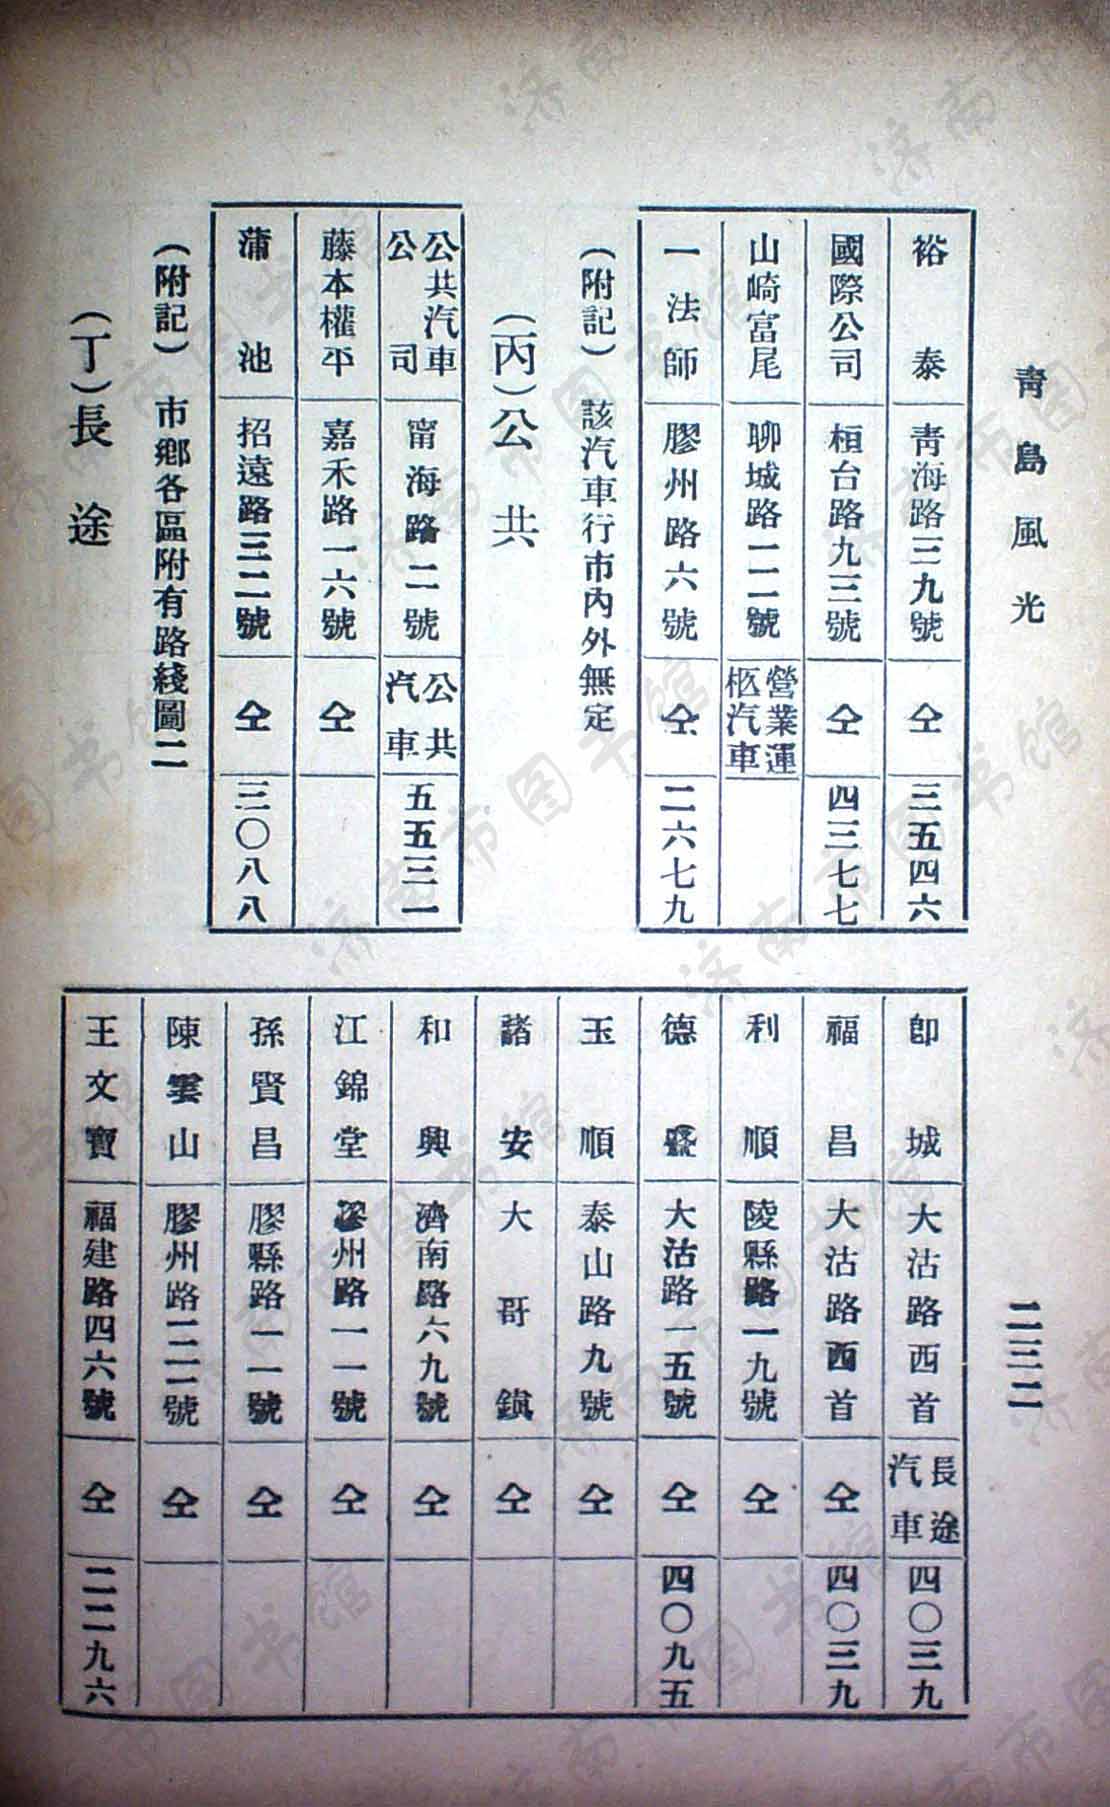 青島風光
二三二
裕泰 青海路三九號 仝 三五四六
國際公司 桓台路九三號 仝 四三七七
山崎富尾 聊城路二二號 營業運柩汽車
一法師 膠州路六號 仝 二六七九
（附記）該汽車行市內外無定
（丙）公共
公共汽車公司 甯海路二號 公共汽車 五五三一
藤本權平 嘉禾路一六號 仝
蒲池 招遠路三二號 仝 三〇八八
（附記）市鄉各區附有路綫圖二
（丁）長途
卽城 大沽路西首 長途汽車 四〇三九
福昌 大沽路西首 仝 四〇三九
利順 陵縣路一九號 仝
德盛 大沽路一五號 仝 四〇九五
玉順 泰山路九號 仝
諸安 大哥鎮 仝
和興 濟南路六九號 仝
江錦堂 州路一一號 仝
孫賢昌 膠縣路一一號 仝
陳雲山 膠州路二二號 仝
王文寶 福建路四六號 仝 二二九六
济南市图书馆